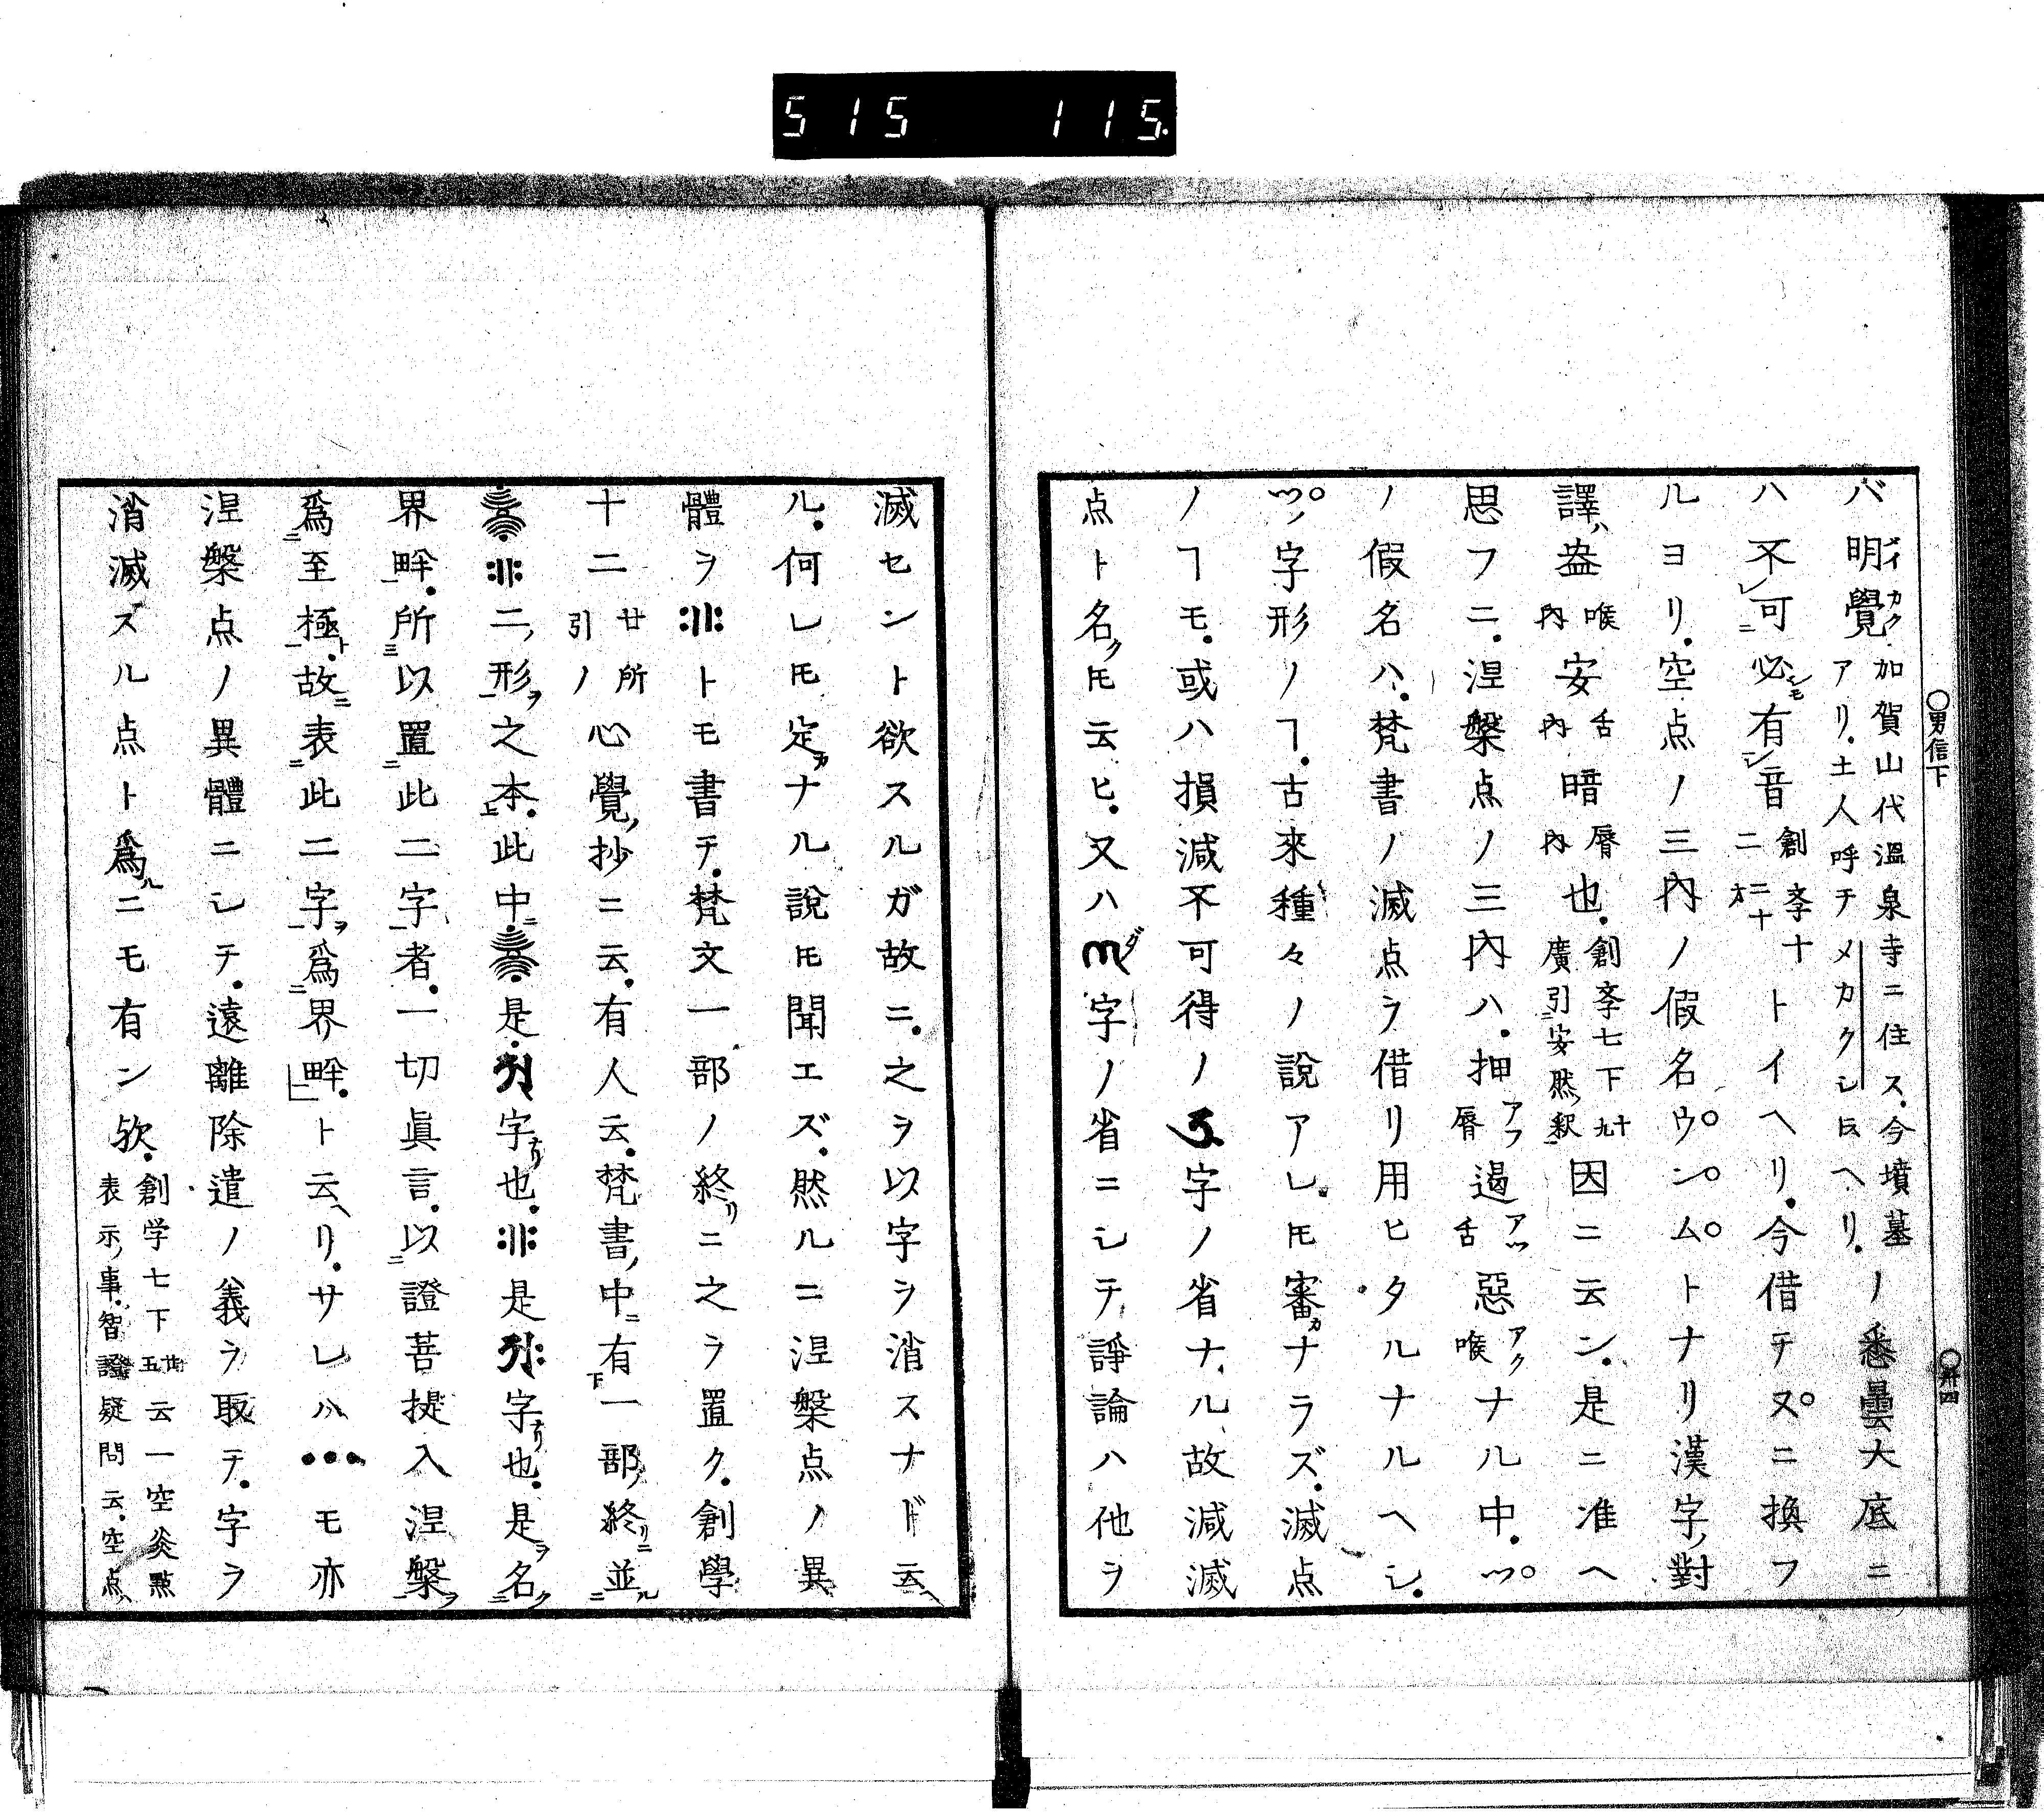 515 115
○男信下
○卅四
バ明覺メイカク加賀山代溫泉寺ニ住ス今墳墓アリ土人呼テメカクシトヘリノ悉曇大底ニ
ハ不可必有音創李十二二十トイヘリ今借テヌ゚ニ換フ
ルヨリ空点ノ三內ノ假名ウ゚ン゚ム゚トナリ漢字對
譯ハ盎喉內安舌內暗脣內也創李七下十九廣引安然釈因ニ云ン是ニ准ヘ
思フニ涅槃点ノ三內ハ押アフ脣遏アツ舌惡アク喉ナル中ツ゚
ノ假名ハ梵書ノ滅点ヲ借リ用ヒタルナルヘシ
ツ゚ノ字形ノヿ古來種々ノ說アレ𪜈審カナラズ滅点
ノヿモ或ハ損減不可得ノ字ノ省ナル故減滅
点ト名ク𪜈云ヒ又ハダ字ノ省ニシテ諍論ハ他ヲ
滅セント欲スルガ故ニ之ヲ以字ヲ消スナド云
ル何レ𪜈定カナル說𪜈聞エズ然ルニ涅槃点ノ異
體ヲトモ書テ梵文一部ノ終リニ之ヲ置ク創學
十二廿所引ノ心覺抄ニ云有人云梵書中ニ有下一部終リニ並ル
二形ヲ之本上此中ニ是字ナリ也是字ナリ也是ヲ名ク
界畔所以置此二字者一切眞言以證菩提入涅槃ヲ
爲至極ト故表此二字ヲ爲界畔ト云ヘリサレハ●●●モ亦
涅槃点ノ異體ニシテ遠離除遣ノ義ヲ取テ字ヲ
消滅ズル点ト爲ルニモ有ン欤創学七下廿五云一空炎點表示ノ事智證疑問云空点